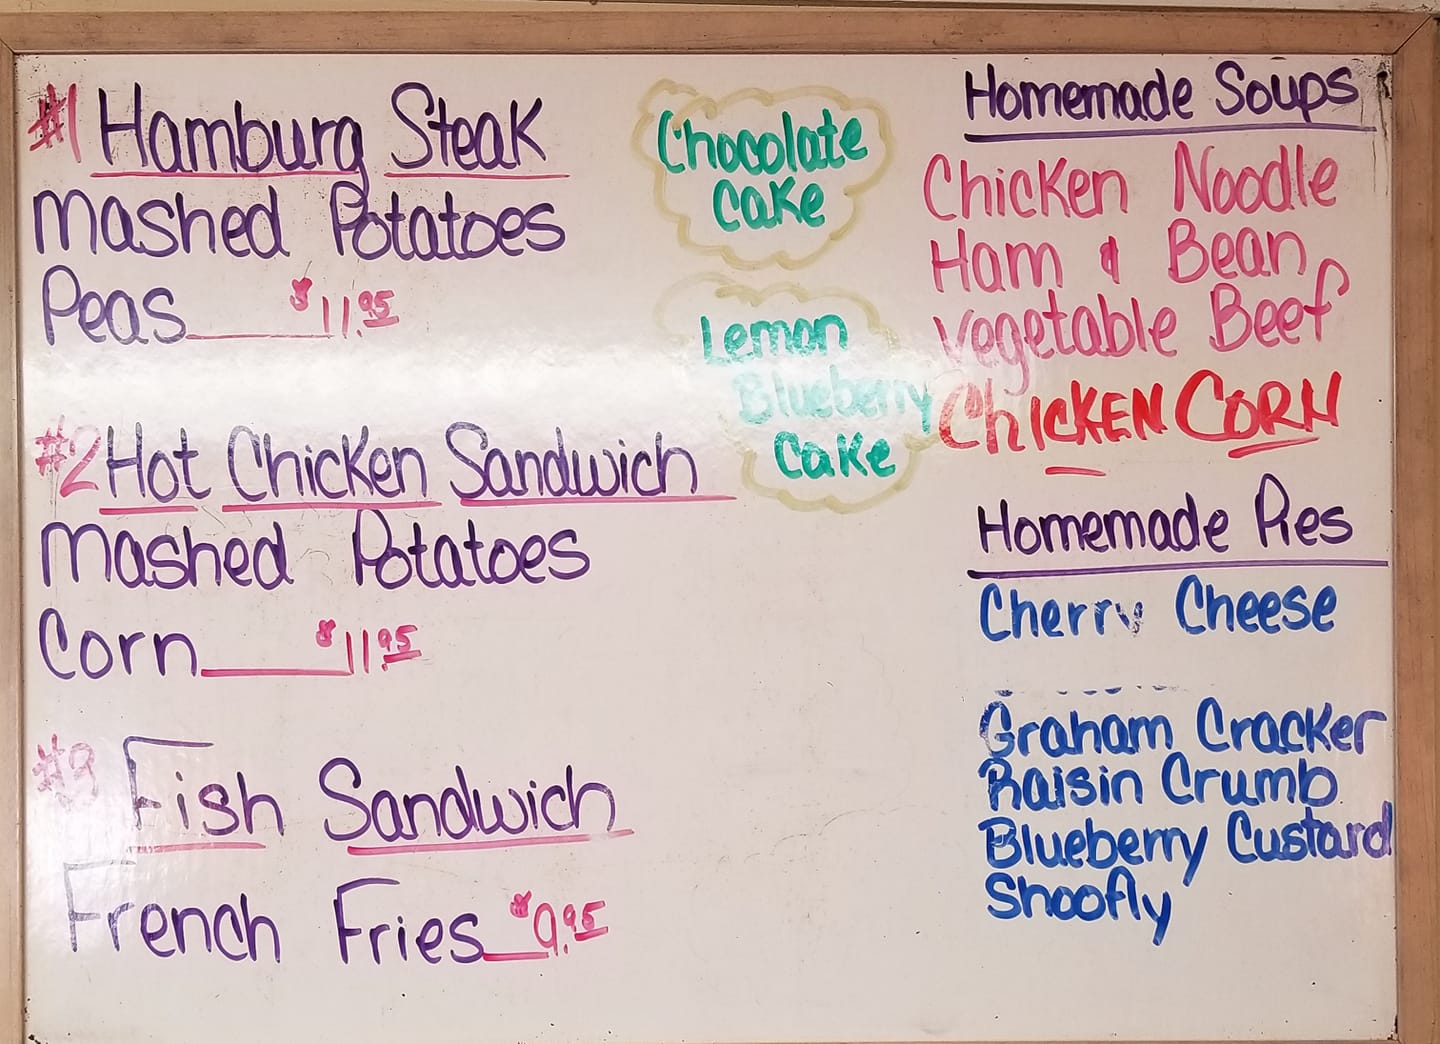 #1 Hamburg Steak
Mashed Potatoes
Peas $11.95
#2 Hot Chicken Sandwich
Mashed Potatoes
Corn $11.95
#3 Fish Sandwich
French Fries $9.95
Chocolate
Cake
Lemon
Blueberry
Cake
Homemade Soups
Chicken Noodle
Ham & Bean
Vegetable Beef
CHICKEN CORN
Homemade Pies
Cherry Cheese
Graham Cracker
Raisin Crumb
Blueberry Custard
Shoofly